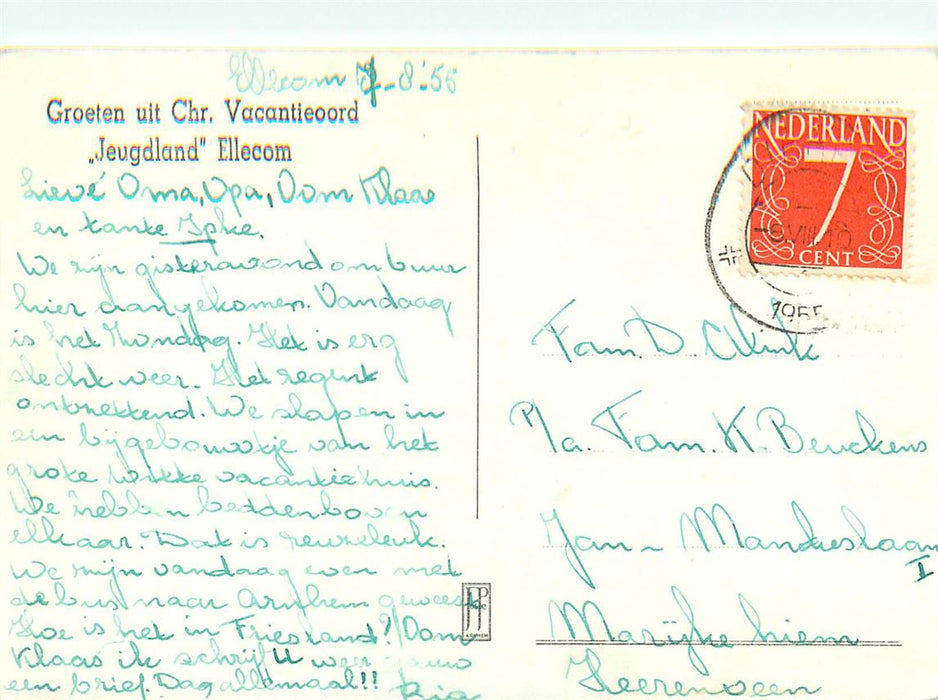 Ellecom 7-8-'55
Groeten uit Chr. Vacantieoord
„Jeugdland" Ellecom
Lieve Oma, Opa, Oom Klaas
en tante Ipke.
We zijn gisteravond om 6 uur
hier aangekomen. Vandaag
is het Zondag. Het is erg
slecht weer. Het regent
ontzettend. We slapen in
een bijgebouwtje van het
grote witte vacantiehuis.
We hebben bedden boven
elkaar. Dat is reuzeleuk.
We zijn vandaag even met
de bus naar Arnhem geweest
Hoe is het in Friesland? Oom
Klaas ik schrijf U weer gauw
een brief. Dag allemaal!!
Ria
NEDERLAND
7
CENT
1955
Fam. D. Clink
P/a. Fam. K. Beuckens
Jan Mankeslaan
I
Marijke hiem
Heerenveen
JP
ARNHEM